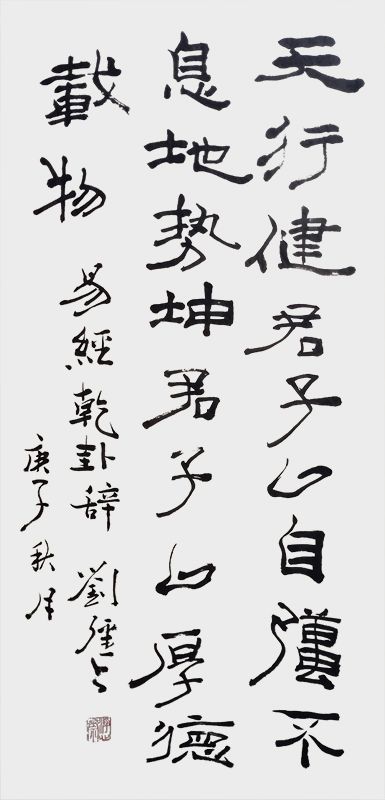 天行健君子以自彊不
息地勢坤君子以厚德
載物 易經乾卦辞 劉
庚子秋月